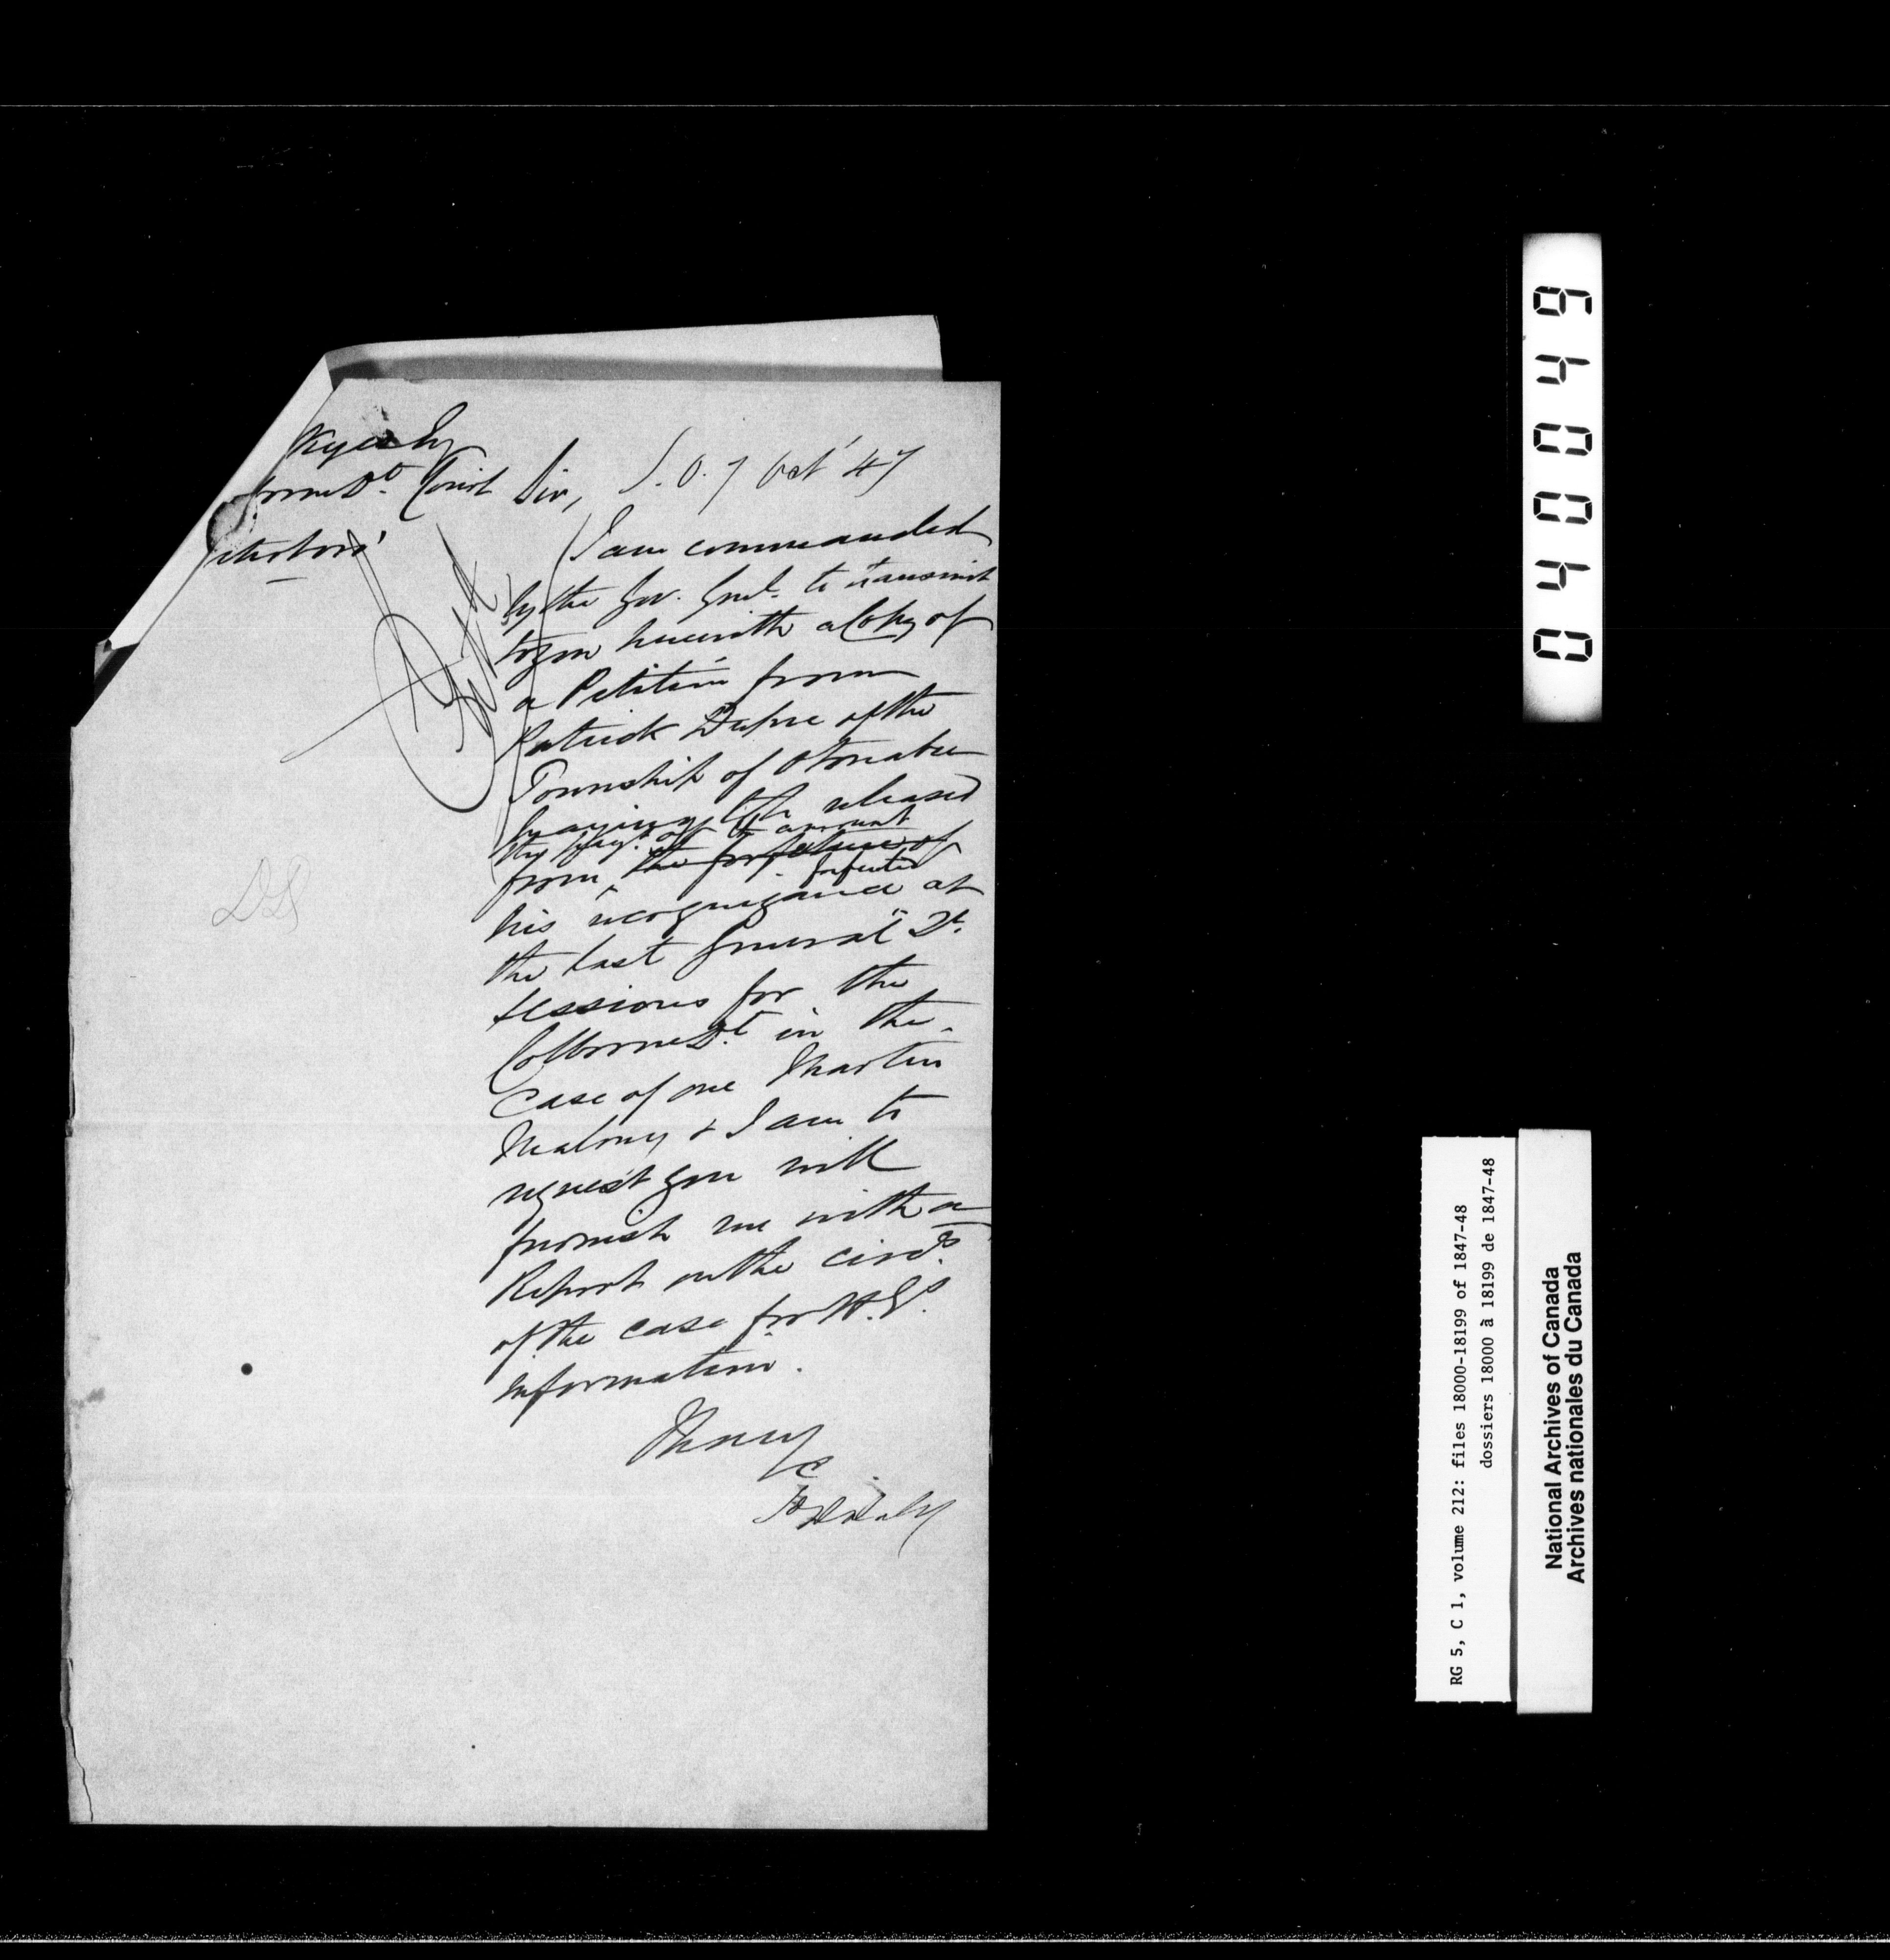 S.O. 7 Oct' 47
Court Sir,
I am commanded
by the Gov. Genl. to transmit
to you herewith a Copy of
a Petition from
Patrick of the
Township of Otonabee
praying to be released
the payt. of the amount
from the forfeiture of
forfeited
his recognizance at
the last General Qr.
Sessions for the
Colborne Dt. in the
case of one Martin
Malony & I am to
request you will
furnish me with a
Report on the circs.
of the case for H. Es.
information.
I have &c
D Daly
940040
RG 5, C 1, volume 212: files 18000-18199 of 1847-48
dossiers 18000 à 18199 de 1847-48
National Archives of Canada
Archives nationales du Canada